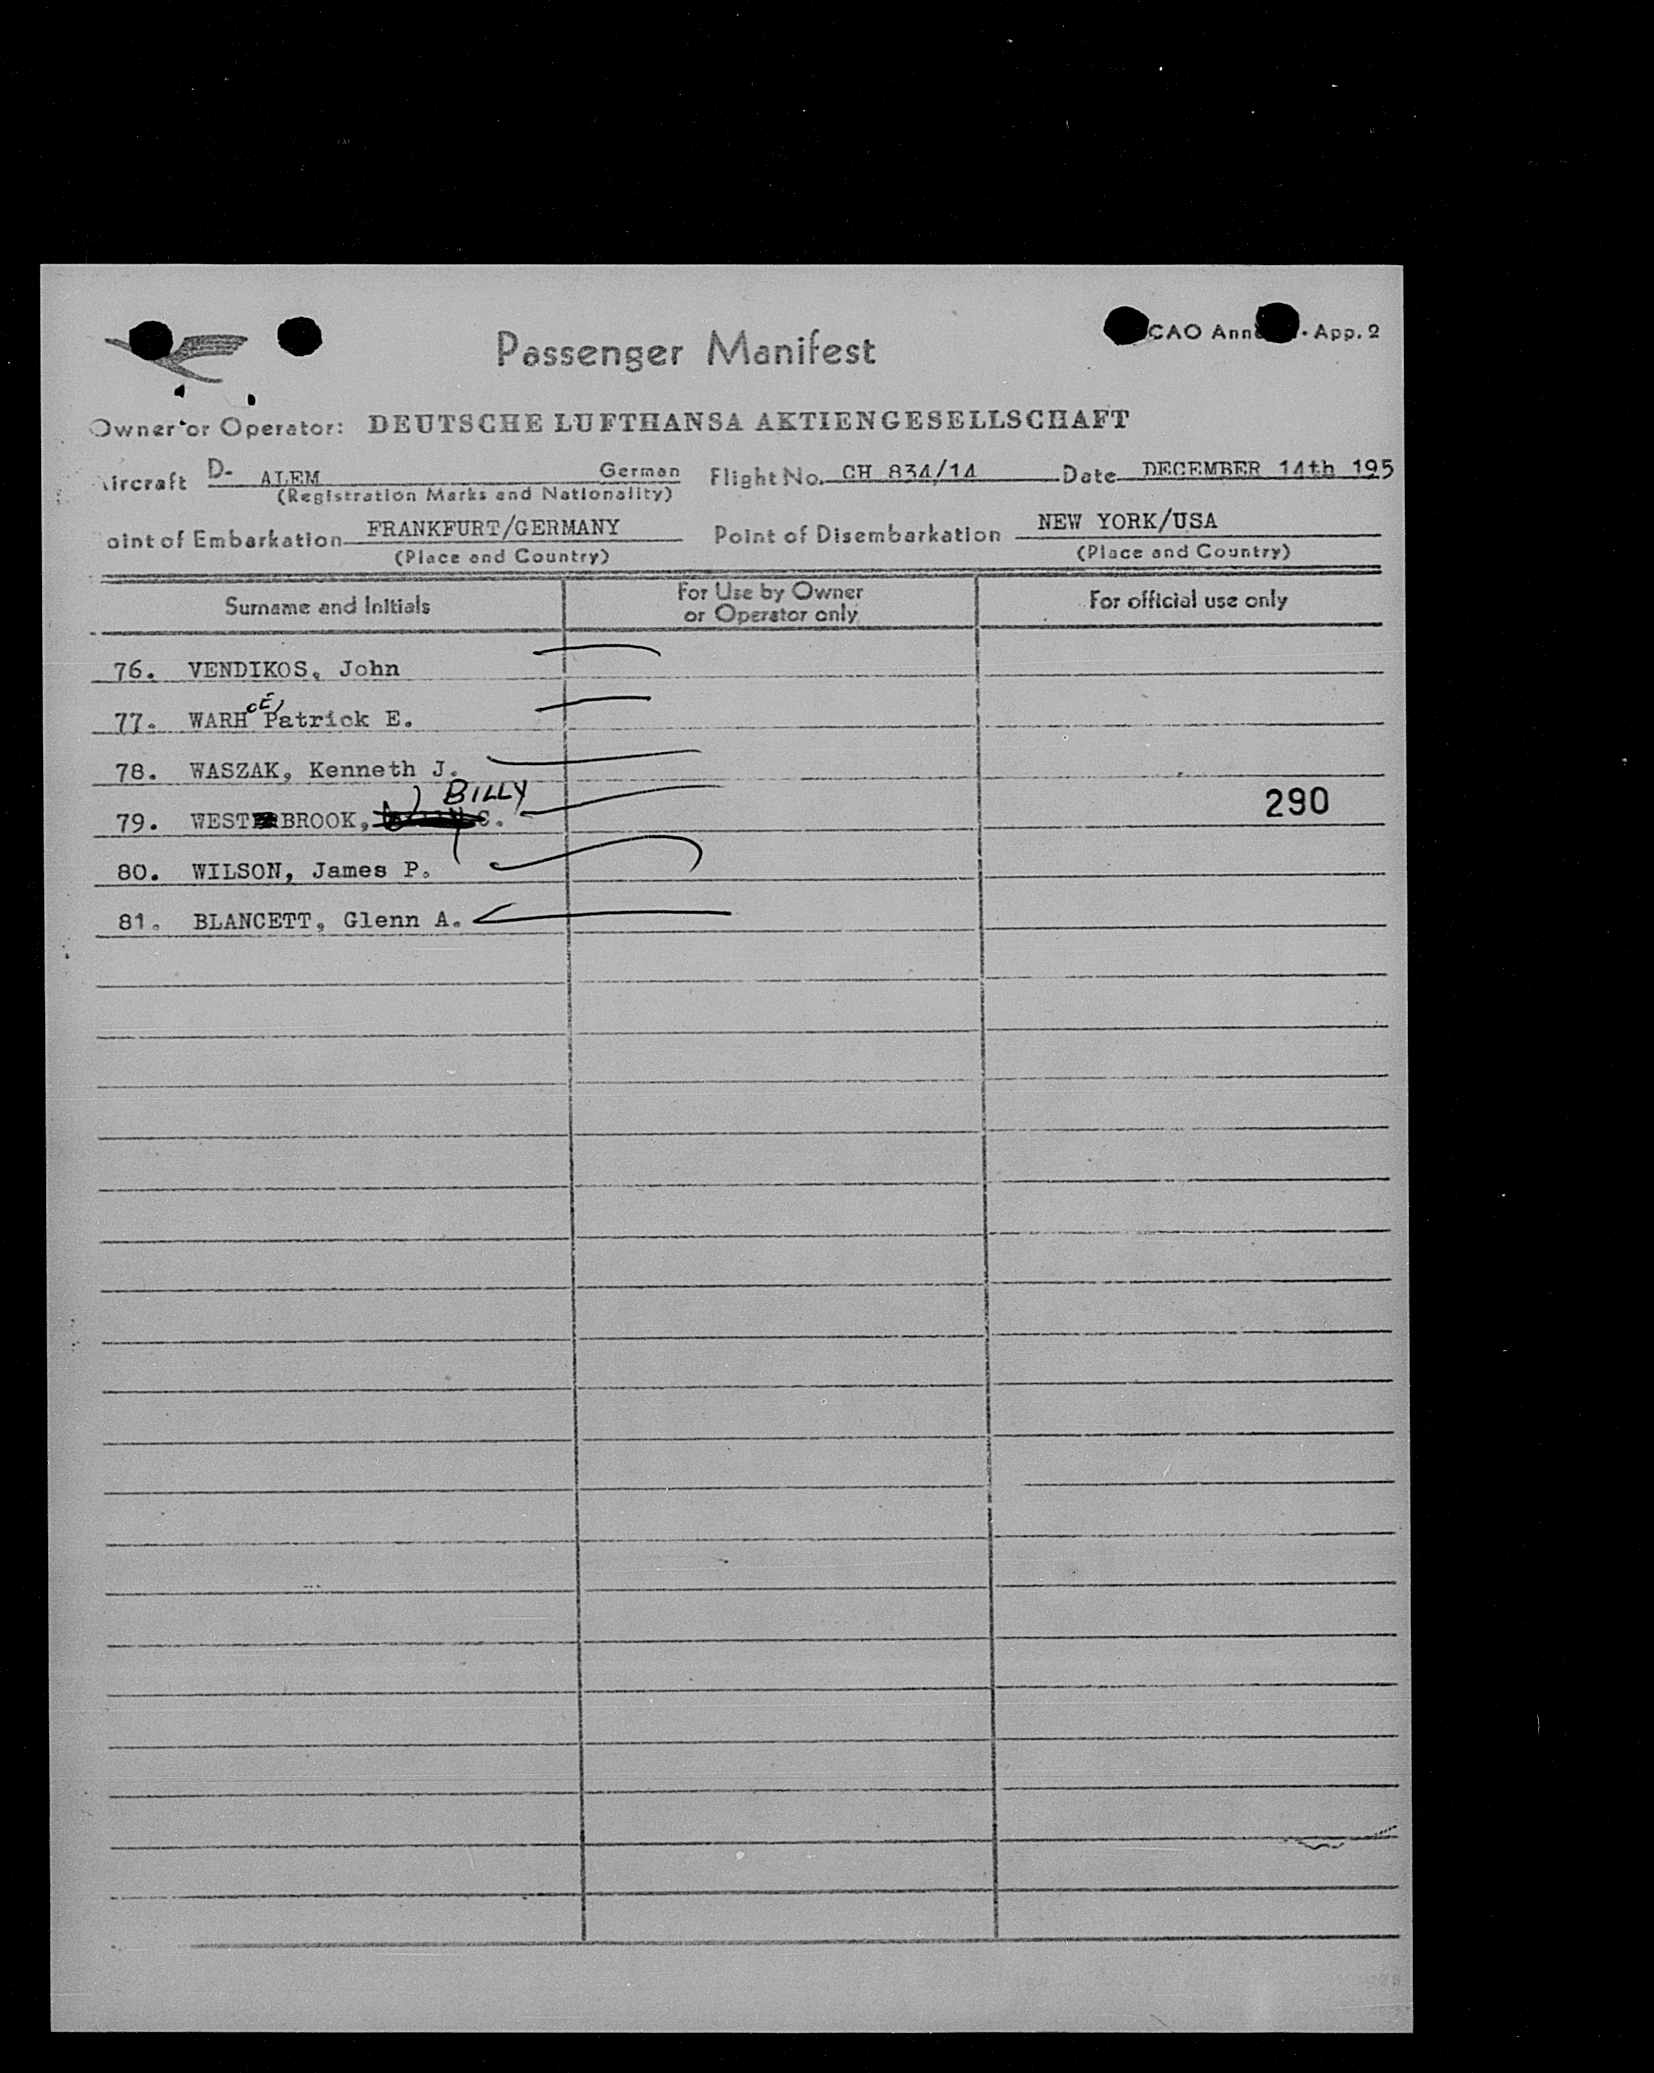 CAO Ann App. 2
Passenger Manifest
Owner or Operator: DEUTSCHE LUFTHANSA AKTIENGESELLSCHAFT
ircraft D- ALEM German Flight No. CH 834/14 Date DECEMBER 14th 195
(Registration Marks and Nationality)
oint of Embarkation FRANKFURT/GERMANY Point of Disembarkation NEW YORK/USA
(Place and Country) (Place and Country)
Surname and Initials For Use by Owner or Operator only For official use only
76. VENDIKOS, John
77. WARH Patrick E.
78. WASZAK, Kenneth J.
BILLY
79. WESTBROOK, C. 290
80. WILSON, James P.
81. BLANCETT, Glenn A.